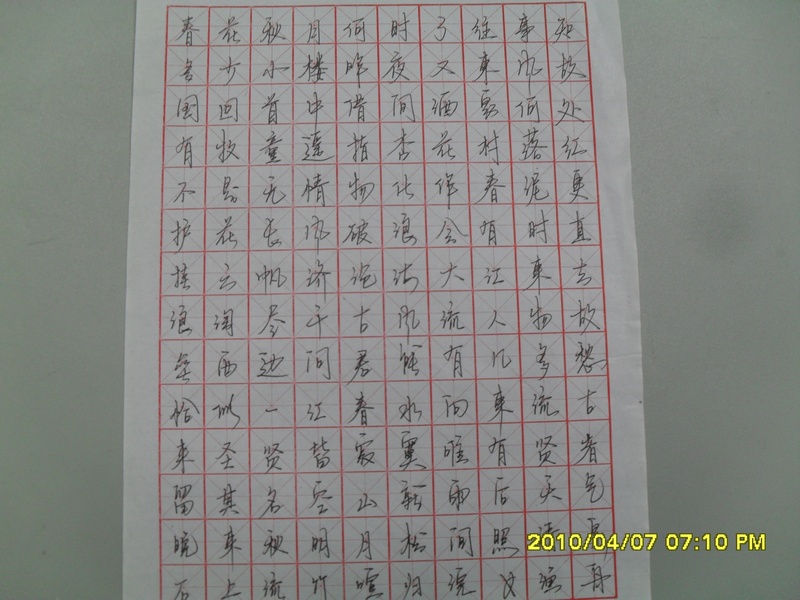 春花秋月何时了往事知
多少小楼昨夜又东风故
国回首中借问酒家何处
有牧童遥指杏花村落红
不是无情物化作春泥更
护花长风破浪会有时直
挂云帆济沧海大江东去
浪淘尽千古风流人物故
垒西边问君能有几多愁
恰似一江春水向东流古
来圣贤皆寂寞唯有贤者
留其名空山新雨后天气
晚来秋明月松间照清泉
石上流竹喧归浣女
2010/04/07 07:10 PM